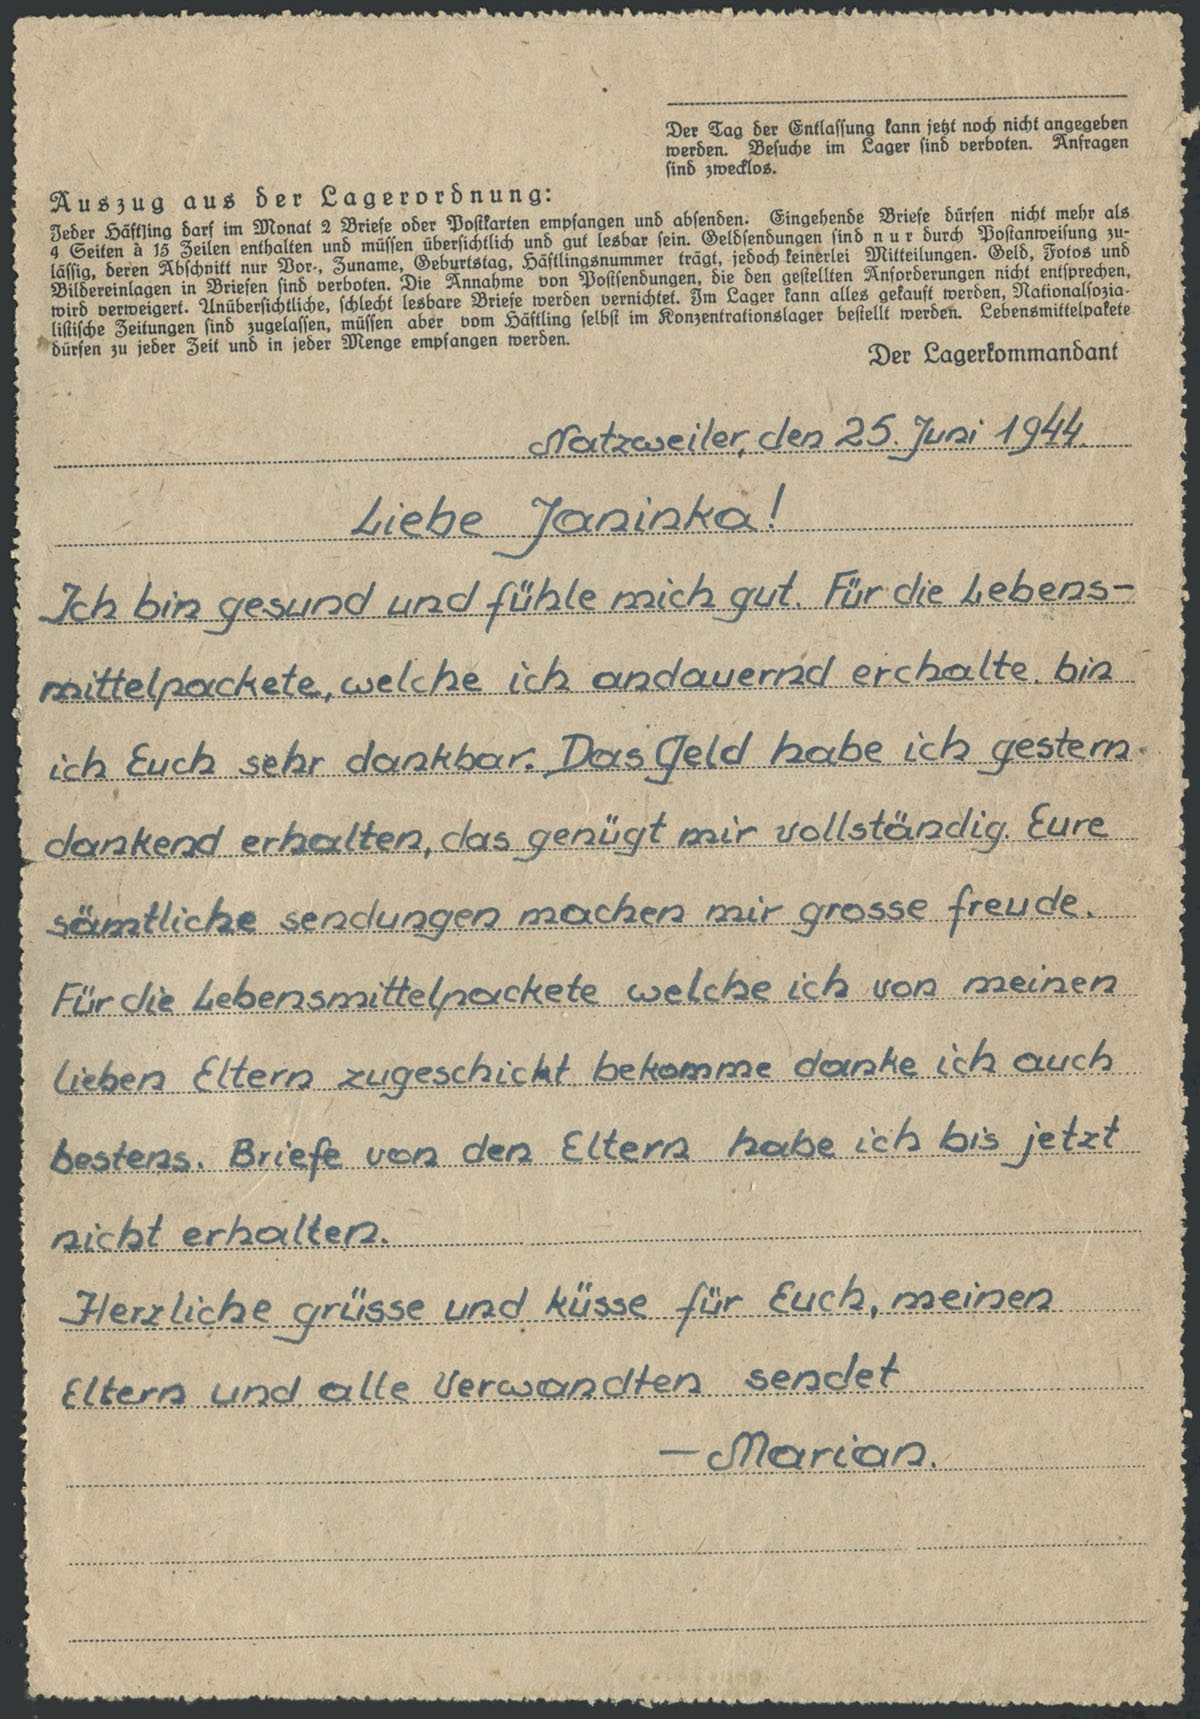 Der Tag der Entlassung kann jetzt noch nicht angegeben
werden. Besuche im Lager sind verboten. Anfragen
sind zwecklos.
Auszug aus der Lagerordnung:
Jeder Häftling darf im Monat 2 Briefe oder Postkarten empfangen und absenden. Eingehende Briefe dürfen nicht mehr als
4 Seiten à 15 Zeilen enthalten und müssen übersichtlich und gut lesbar sein. Geldsendungen sind nur durch Postanweisung zu-
lässig, deren Abschnitt nur Vor-, Zuname, Geburtstag, Häftlingsnummer trägt, jedoch keinerlei Mitteilungen. Geld, Fotos und
Bildereinlagen in Briefen sind verboten. Die Annahme von Postsendungen, die den gestellten Anforderungen nicht entsprechen,
wird verweigert. Unübersichtliche, schlecht lesbare Briefe werden vernichtet. Im Lager kann alles gekauft werden, Nationalsozia-
listische Zeitungen sind zugelassen, müssen aber vom Häftling selbst im Konzentrationslager bestellt werden. Lebensmittelpakete
dürfen zu jeder Zeit und in jeder Menge empfangen werden.
Der Lagerkommandant
Natzweiler, den 25. Juni 1944.
Liebe Janinka!
Ich bin gesund und fühle mich gut. Für die Lebens-
mittelpackete, welche ich andauernd erchalte. bin
ich Euch sehr dankbar. Das Geld habe ich gestern
dankend erhalten, das genügt mir vollständig. Eure
sämtliche sendungen machen mir grosse freude.
Für die Lebensmittelpackete welche ich von meinen
lieben Eltern zugeschickt bekomme danke ich auch
bestens. Briefe von den Eltern habe ich bis jetzt
nicht erhalten.
Herzliche grüsse und küsse für Euch, meinen
Eltern und alle Verwandten sendet
— Marian.